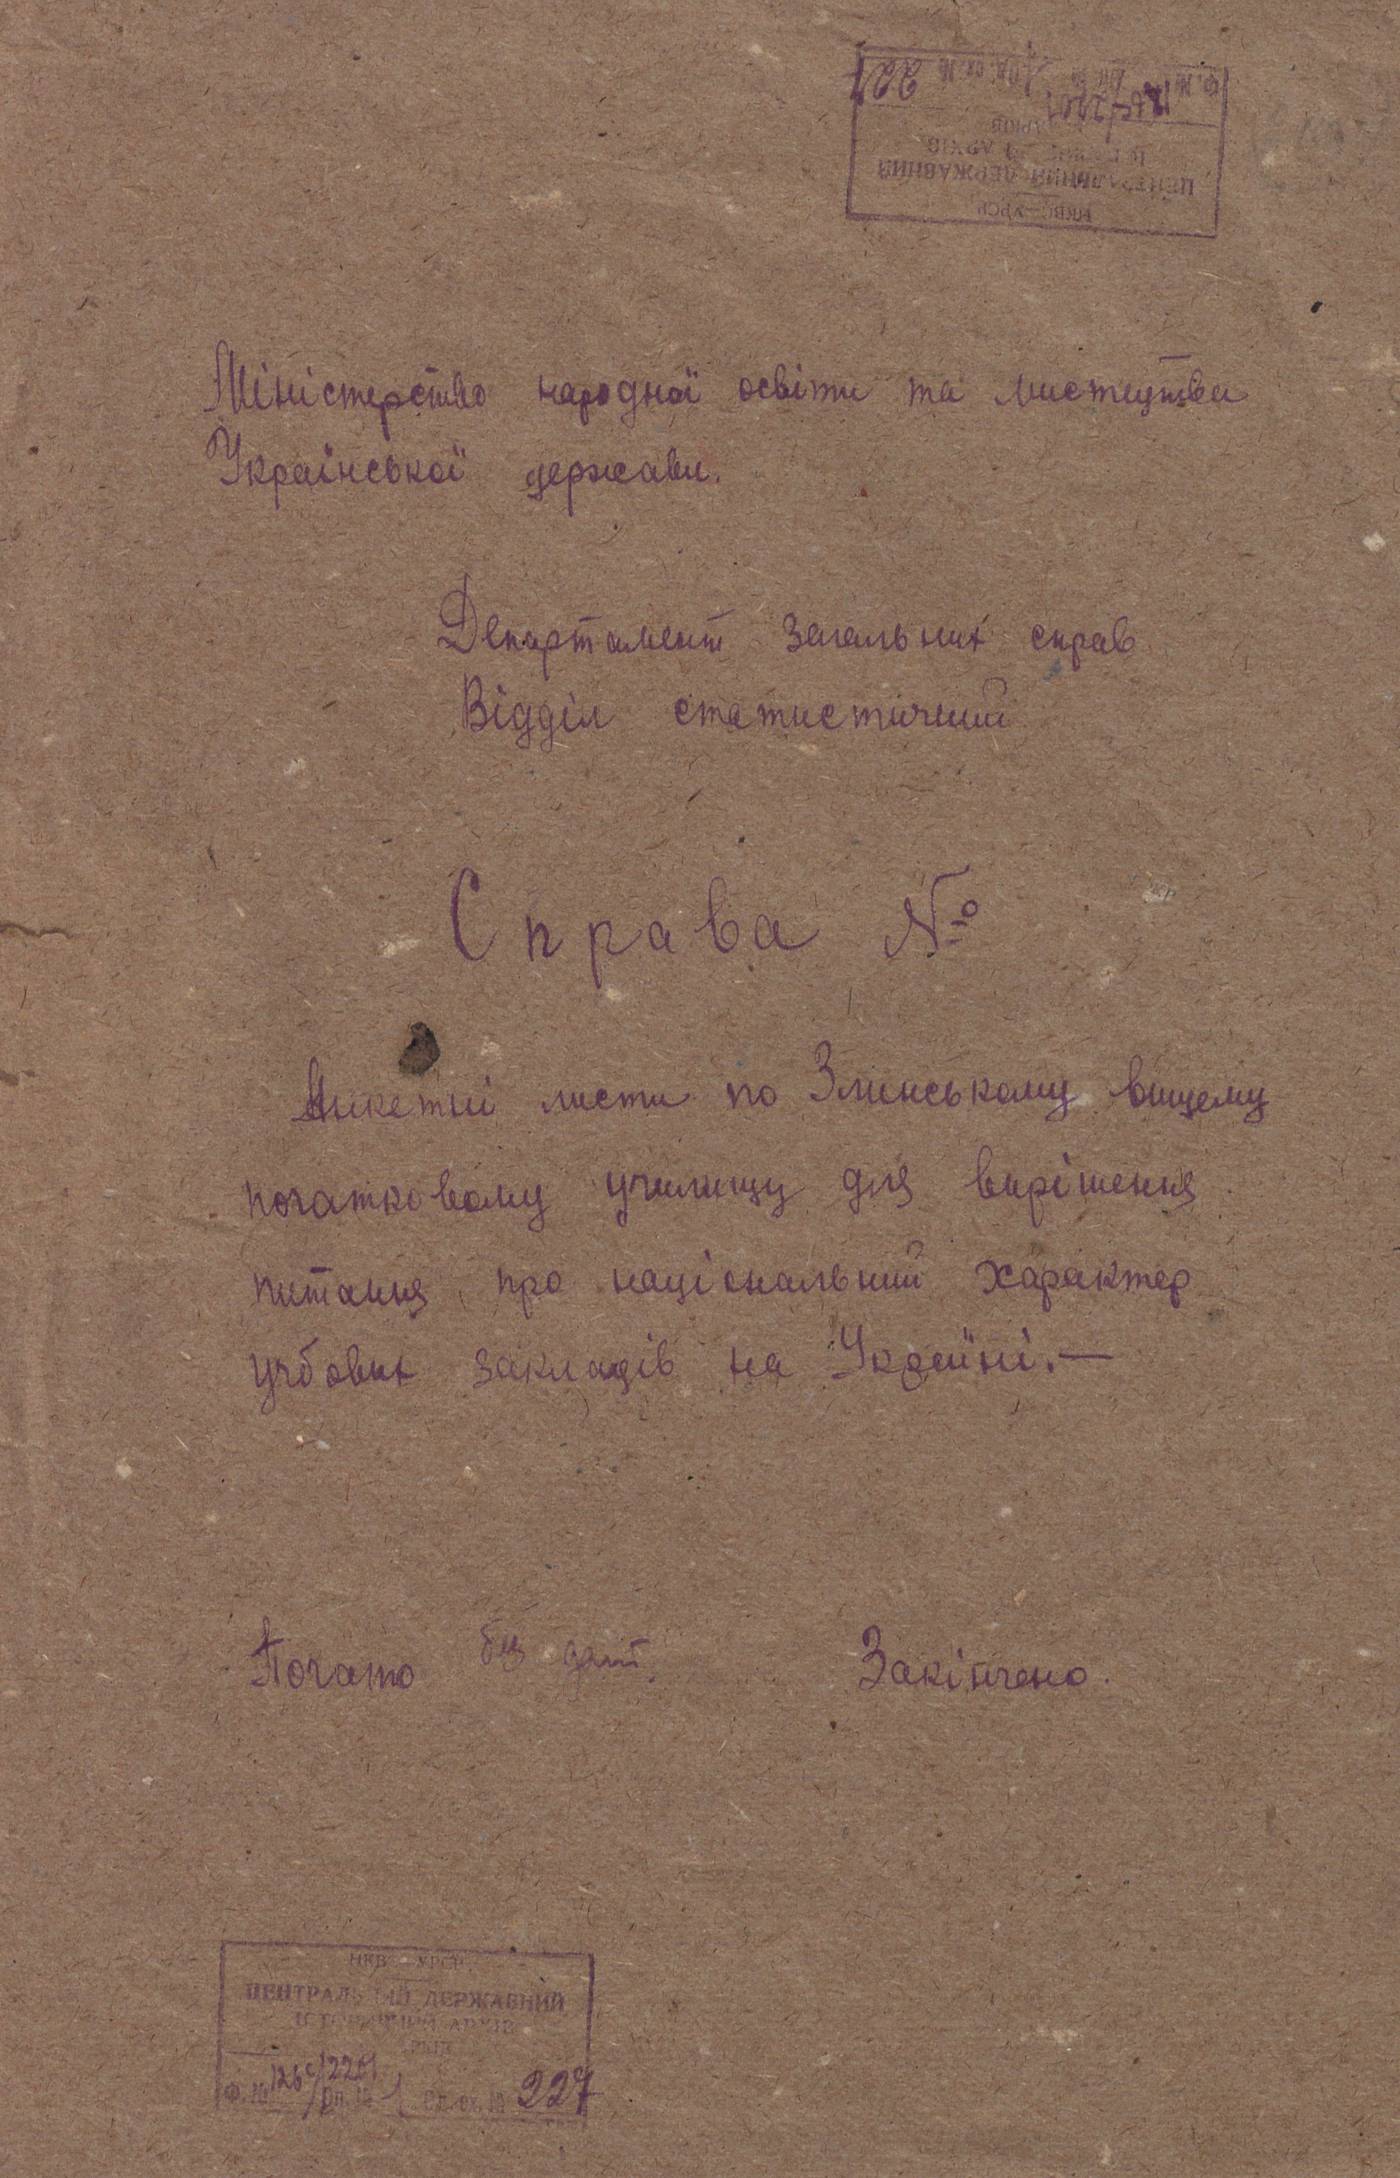 НКВС УРСР
ЦЕНТРАЛЬНИЙ ДЕРЖАВНИЙ
АРХІВ
Ф. № Оп. № 1 Од. сх. № 227
Міністерство народної освіти та мистецтва
Української держави.
Департамент загальних справ
Відділ статистичний
Справа №
Анкетні листи по Злинському вищому
початковому училищу для вирішення
питання про національний характер
учбових закладів на Україні.—
Почато без дат. Закінчено.
НКВС УРСР
ЦЕНТРАЛЬНИЙ ДЕРЖАВНИЙ
ІСТОРИЧНИЙ АРХІВ
Ф. № Оп. № 1 Од. сх. № 227